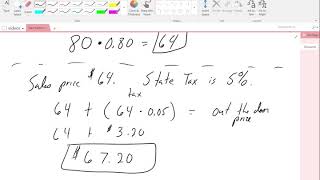 80 · 0.80 = 64
Sales price $64. State Tax is 5%.
tax
64 + (64 · 0.05) = out the door price
64 + $3.20
$67.20